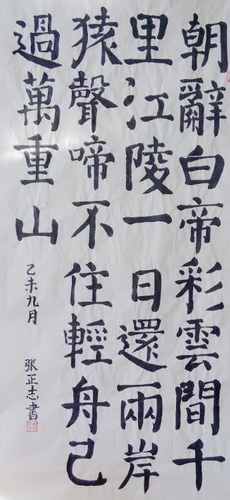 朝辭白帝彩雲間千
里江陵一日還兩岸
猿聲啼不住輕舟已
過萬重山
乙未九月
张正志書